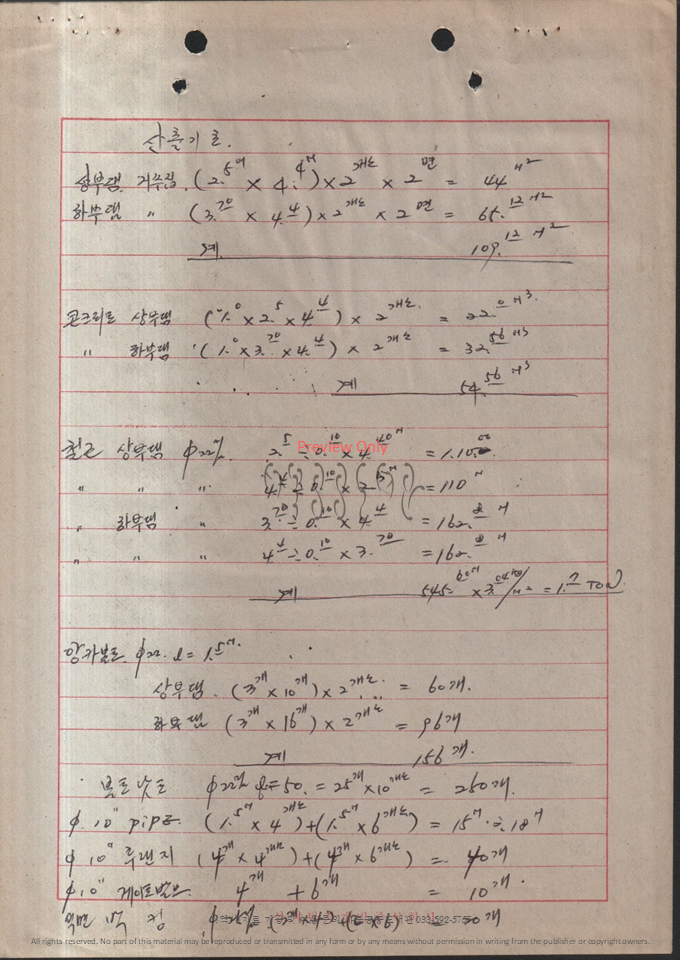 산출기초.
상부댐 거푸집. (2.5M × 4.4M) × 2개소 × 2면 = 44 M2
하부댐 〃 (3.70 × 4.4) × 2개소 × 2면 = 65.12 M2
계. 109.12 M2
콘크리트 상부댐 (1.0 × 2.5 × 4.4) × 2개소. = 22.0 M3.
〃 하부댐 (1.0 × 3.70 × 4.4) × 2개소 = 32.56 M3
계 54.56 M3
철근 상부댐 φ22% 2.5 ÷ 0.10 × 4.40M = 1.10.00
Preview Only
〃 〃 〃 = 110 M
〃 하부댐 〃 3.70 ÷ 0.10 × 4.4 = 162.8 M
〃 〃 〃 4.4 ÷ 0.10 × 3.70 = 162.8 M
계 545.60M = 1.7 TON
앙카볼트 φ22. l = 1.5M.
상부댐. (3개 × 10개) × 2개소. = 60개.
하부댐 (3개 × 16개) × 2개소 = 96개
계 156개.
볼트 낫트 φ22% l=50. = 25개 × 10개소 = 250개.
φ.10" PiPE. (1.5M × 4개소) + (1.5M × 6개소) = 15M
φ 10" 후렌지 (4개 × 4개소) + (4개 × 6개소) = 40개
φ10" 게이트발브. 4개 + 6개 = 10개.
033)592-575
All rights reserved. No part of this material may be reproduced or transmitted in any form or by any means without permission in writing from the publisher or copyright owners.